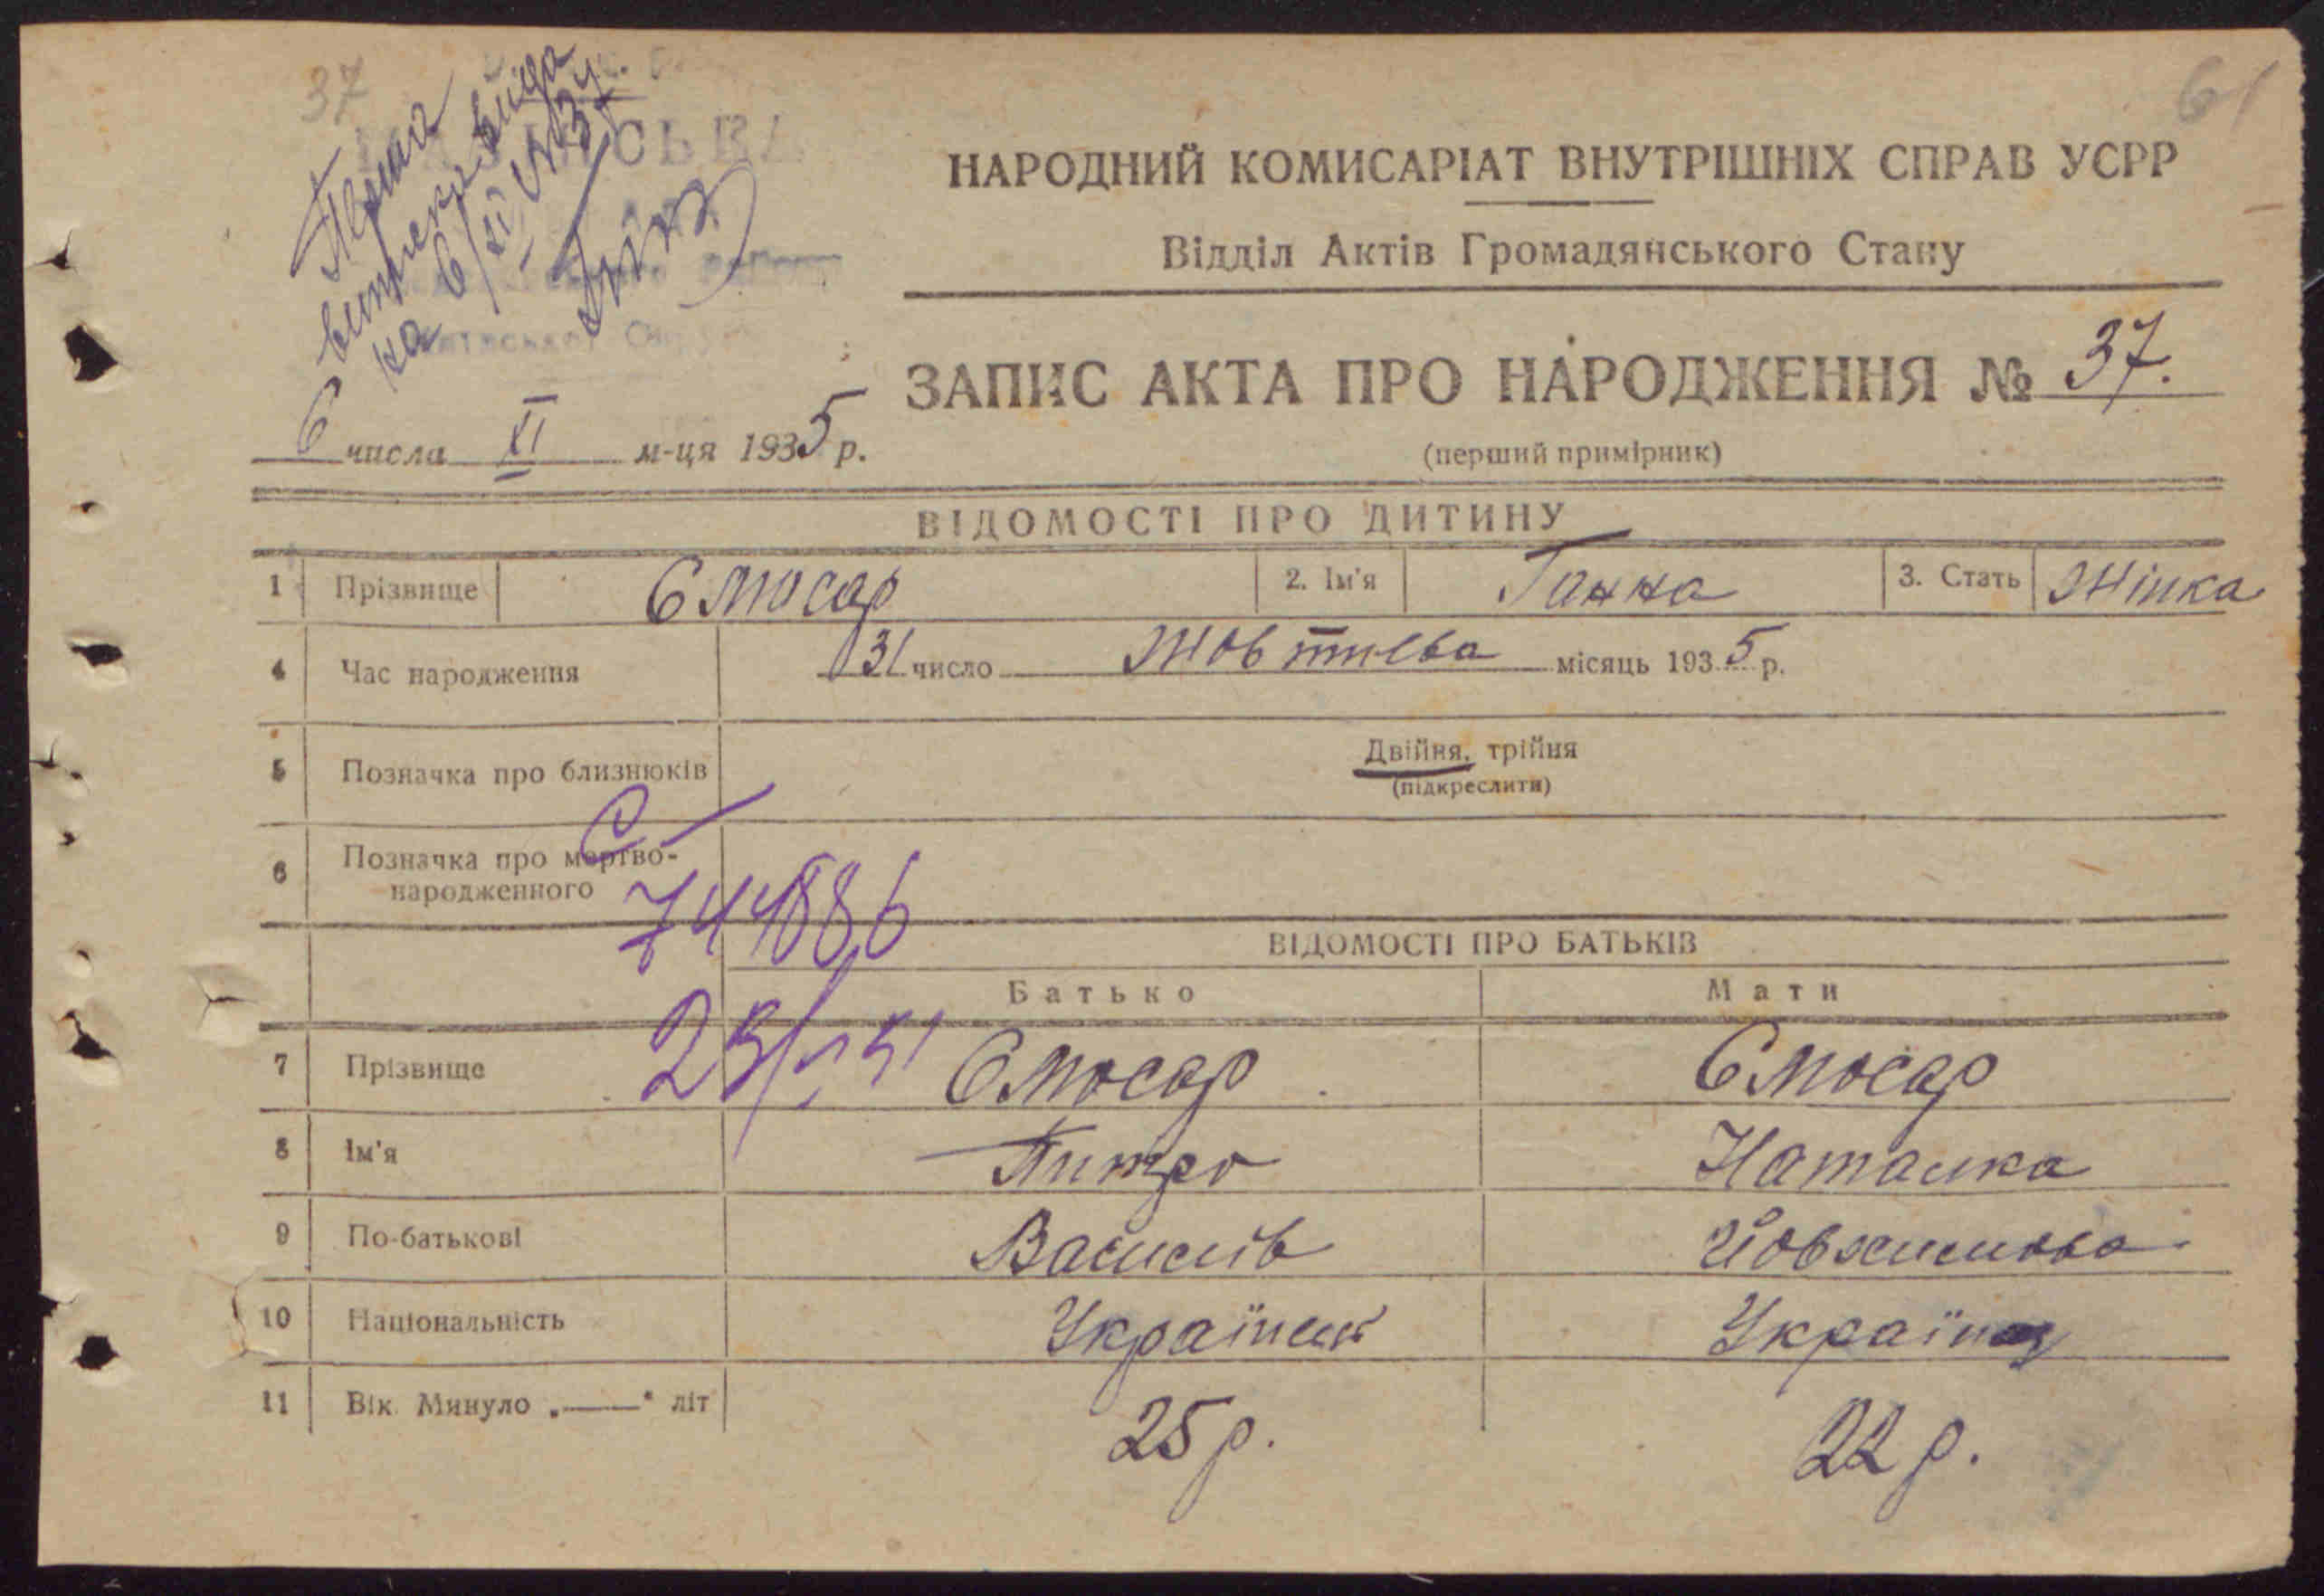 37
61
Перша
виписка видана
на 6/XI №37
НАРОДНИЙ КОМИСАРІАТ ВНУТРІШНІХ СПРАВ УСРР
Відділ Актів Громадянського Стану
ЗАПИС АКТА ПРО НАРОДЖЕННЯ № 37.
6 числа XI м-ця 1935 р.
(перший примірник)
ВІДОМОСТІ ПРО ДИТИНУ
1 Прізвище Слюсар 2. Ім'я Ганна 3. Стать Жінка
4 Час народження 31 число Жовтнева місяць 1935 р.
5 Позначка про близнюків Двійня, трійня
(підкреслити)
6 Позначка про мертво-
народженного
С
744886
ВІДОМОСТІ ПРО БАТЬКІВ
Батько Мати
7 Прізвище Слюсар Слюсар
8 Ім'я Питро Наталка
9 По-батькові Василів Йовхимова
10 Національність Українец Українка
11 Вік. Минуло „——“ літ 25 р. 22 р.